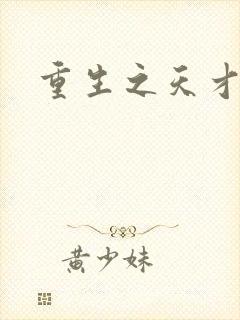 重生之天才
黄少妹